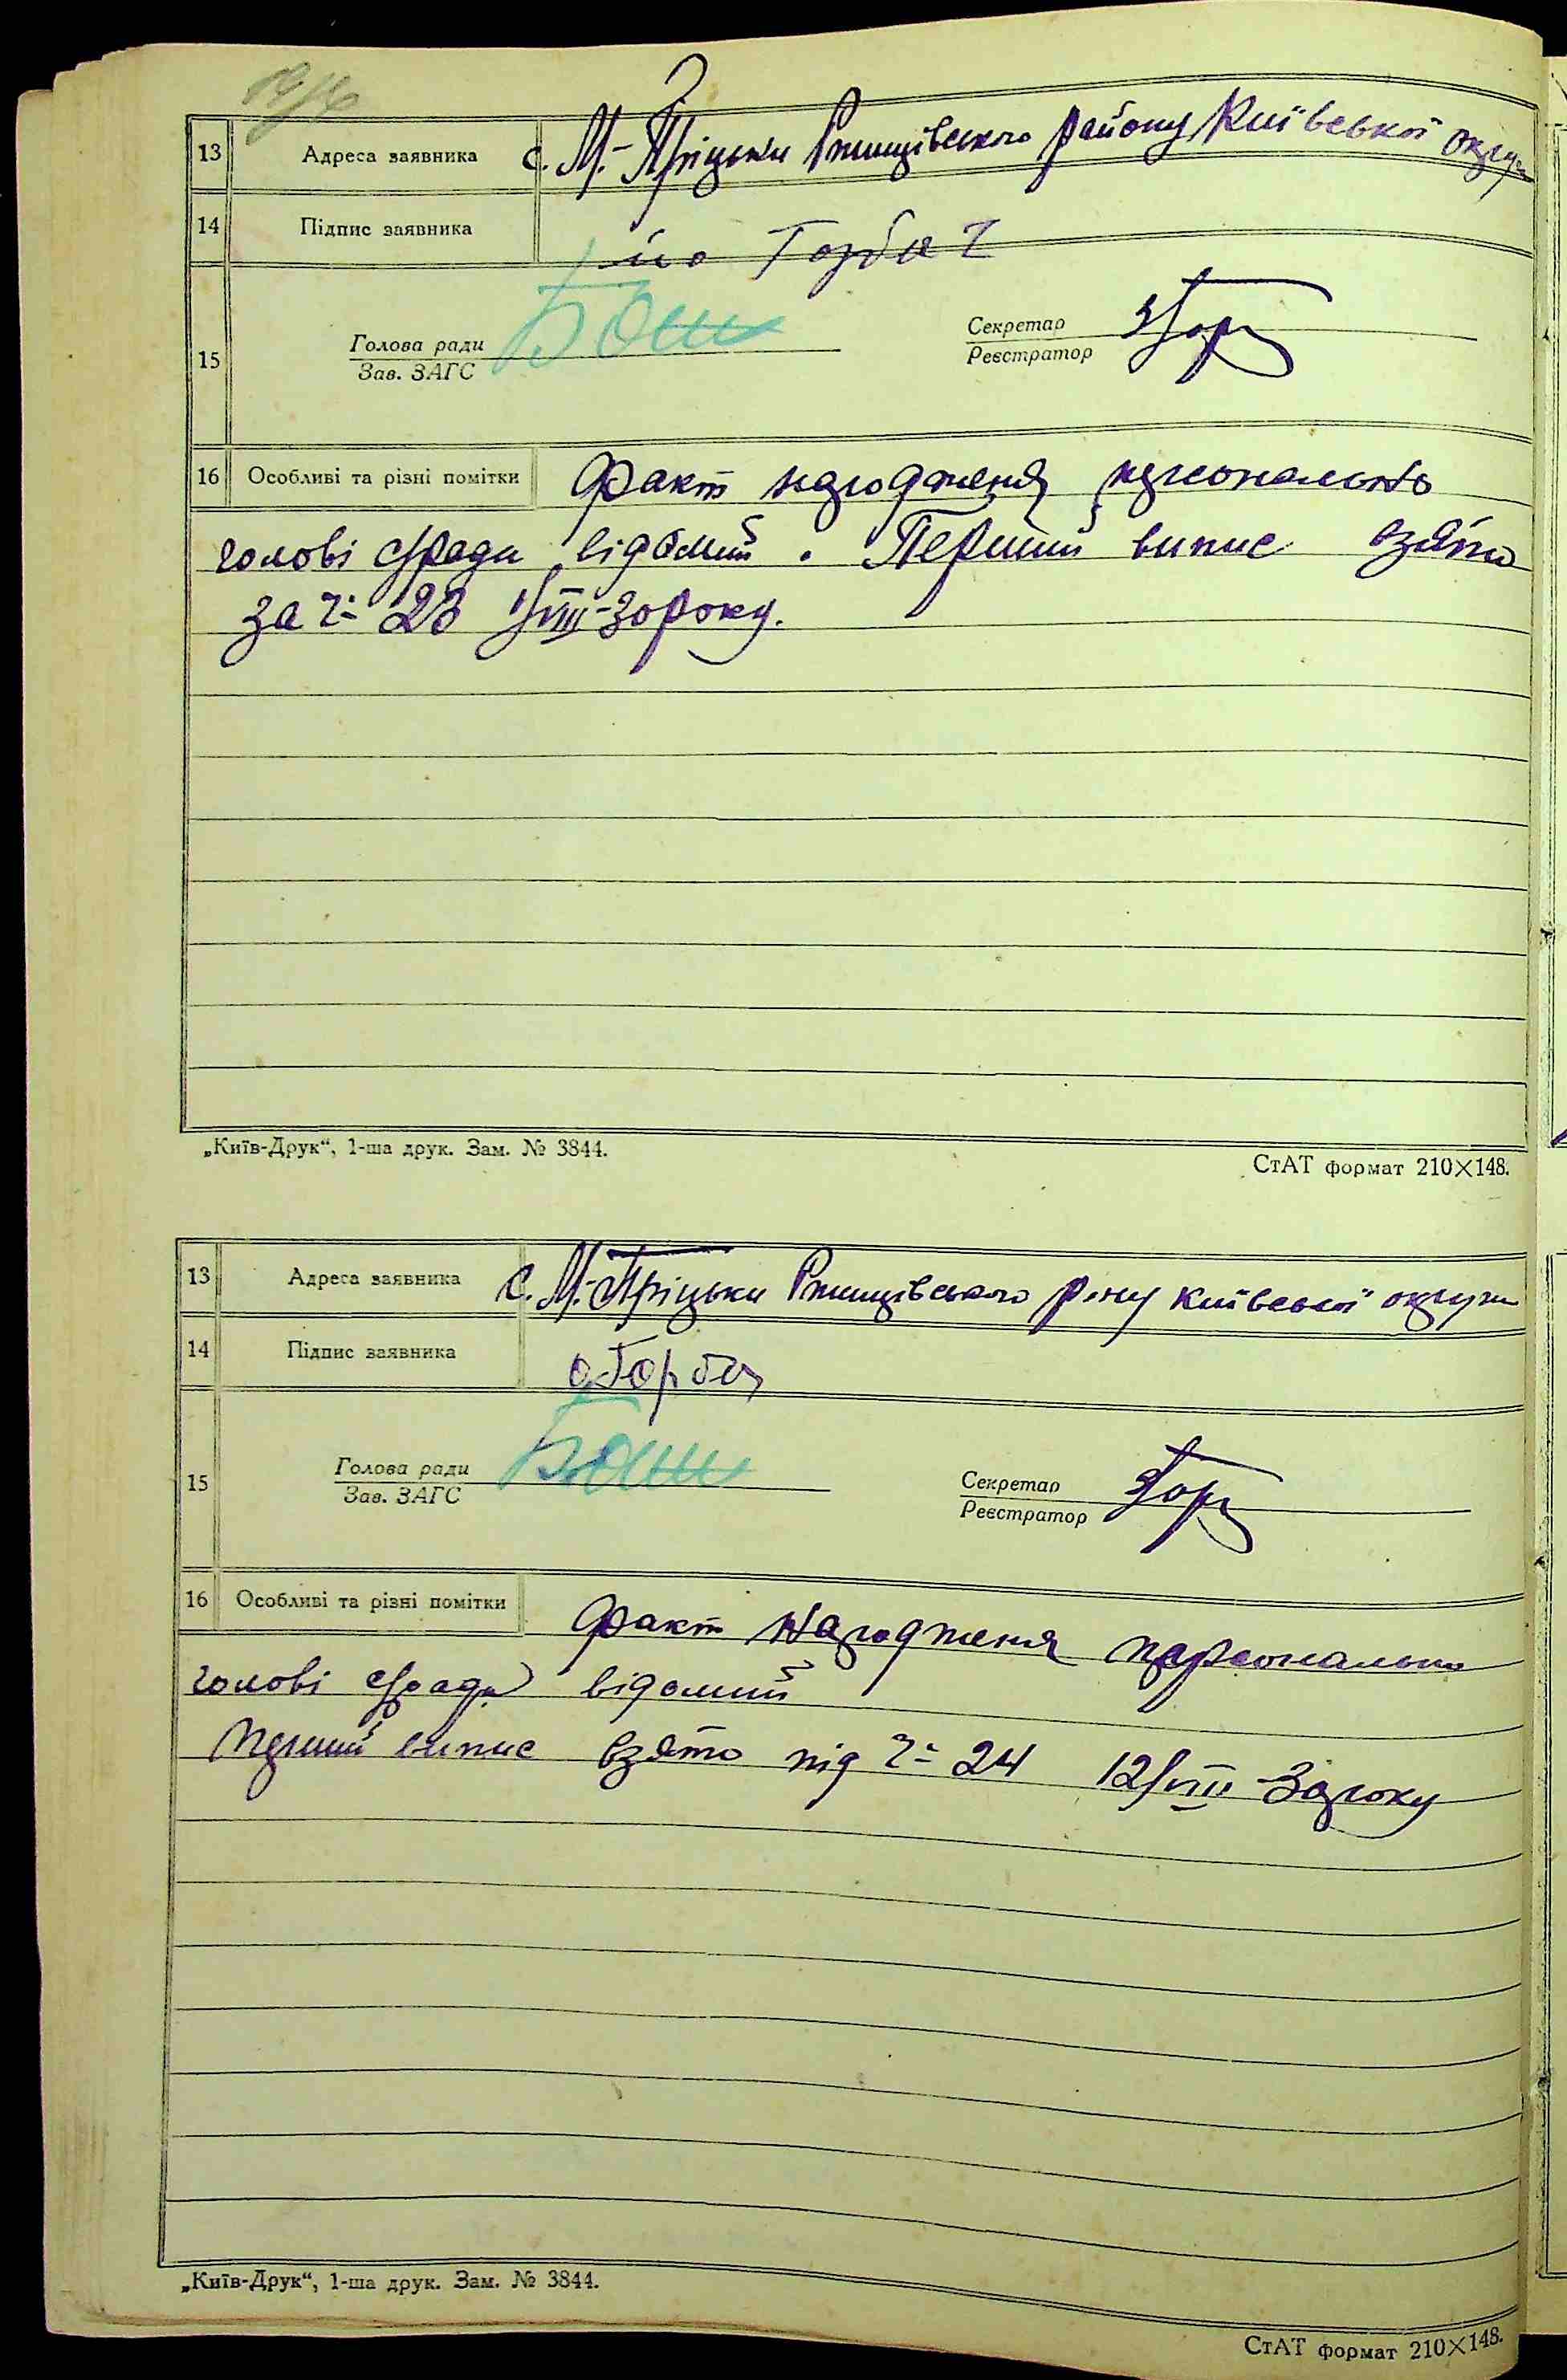 13 Адреса заявника с. М.-Пріцьки Ржищівського району Київської округи
14 Підпис заявника Горбач
15 Голова ради Секретар
Зав. ЗАГС Реєстратор
16 Особливі та різні помітки Факт народження персонально
голові с/ради відомий. Перший випис взято
за ч- 23 VIII-30 року.
„Київ-Друк“, 1-ша друк. Зам. № 3844.
СтАТ формат 210×148.
13 Адреса заявника с. М.-Пріцьки Ржищівського р-ну Київської округи
14 Підпис заявника
15 Голова ради Секретар
Зав. ЗАГС Реєстратор
16 Особливі та різні помітки Факт народження персонально
голові с/ради відомий
Перший випис взято під ч- 24 12/VIII-30 року
„Київ-Друк“, 1-ша друк. Зам. № 3844.
СтАТ формат 210×148.